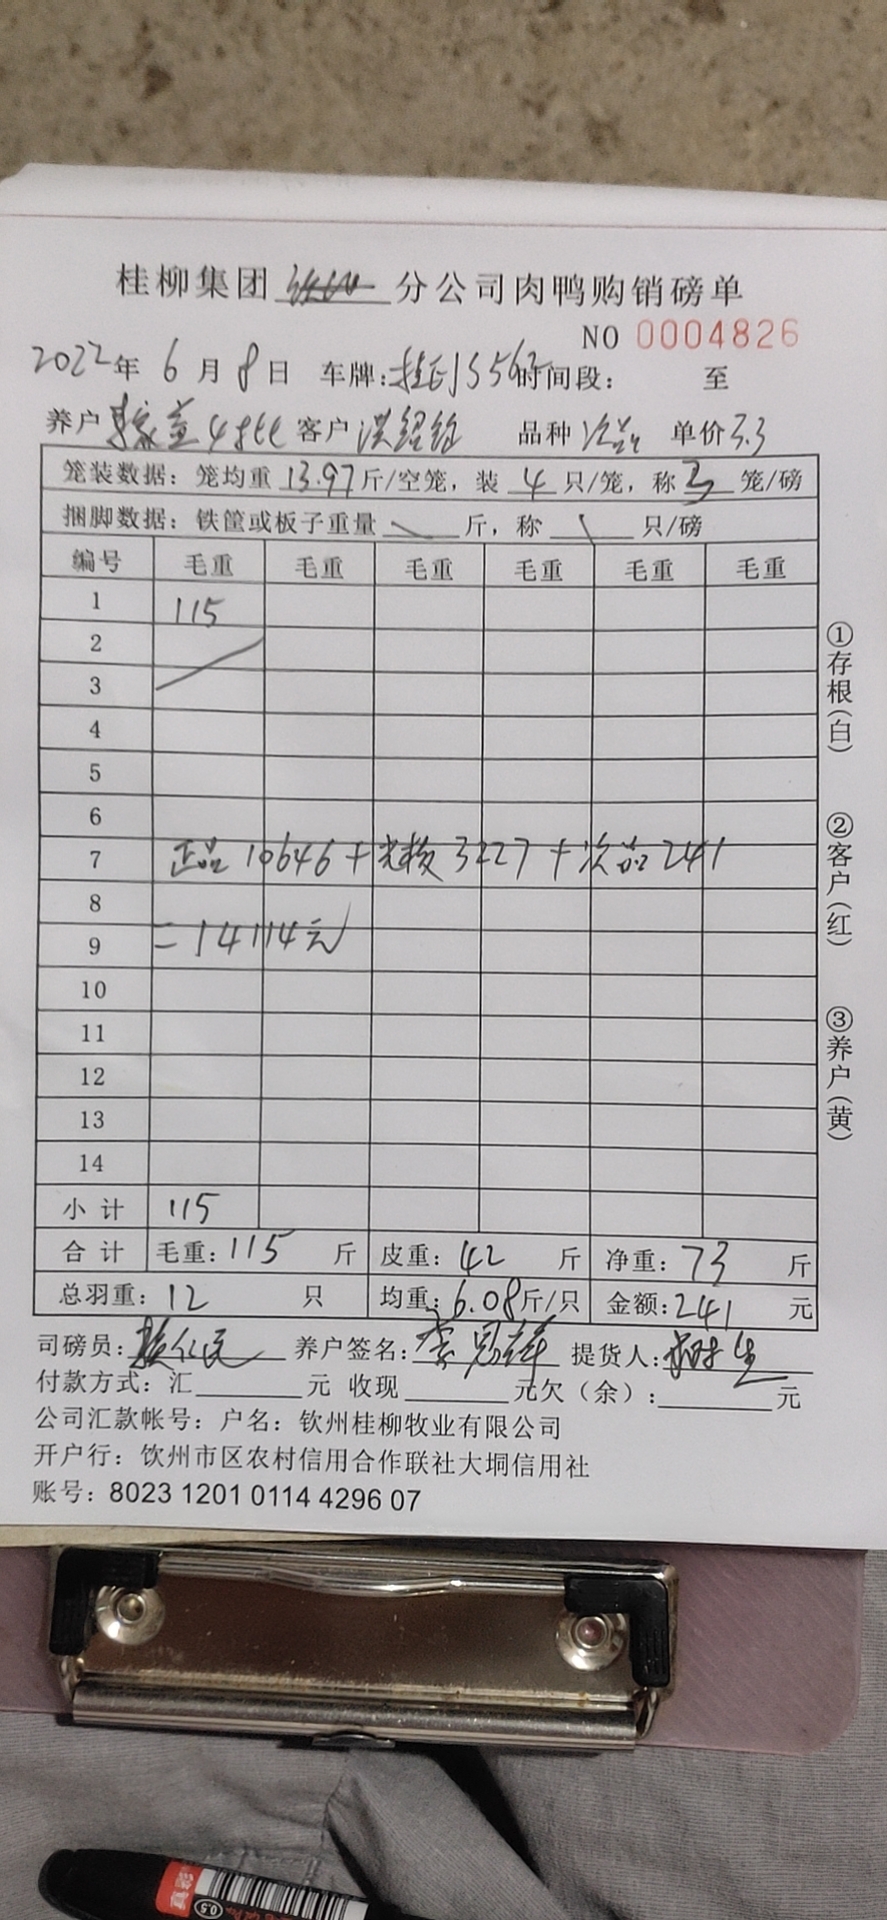 桂柳集团 分公司肉鸭购销磅单
NO 0004826
2022年6月8日 车牌: 时间段: 至
养户 客户 洪绍铨 品种 次品 单价 3.3
笼装数据: 笼均重 13.97 斤/空笼, 装 4 只/笼, 称 3 笼/磅
捆脚数据: 铁筐或板子重量 斤, 称 只/磅
编号 毛重 毛重 毛重 毛重 毛重 毛重
1 115
2
3
4
5
6
7 正品10646+ 3227+次品241
8
9 =14114元
10
11
12
13
14
小计 115
合计 毛重: 115 斤 皮重: 42 斤 净重: 73 斤
总羽重: 12 只 均重: 6.08斤/只 金额: 241 元
司磅员: 养户签名: 提货人:
付款方式: 汇 元 收现 元欠(余): 元
公司汇款帐号: 户名: 钦州桂柳牧业有限公司
开户行: 钦州市区农村信用合作联社大垌信用社
账号: 8023 1201 0114 4296 07
①存根(白) ②客户(红) ③养户(黄)
0.5